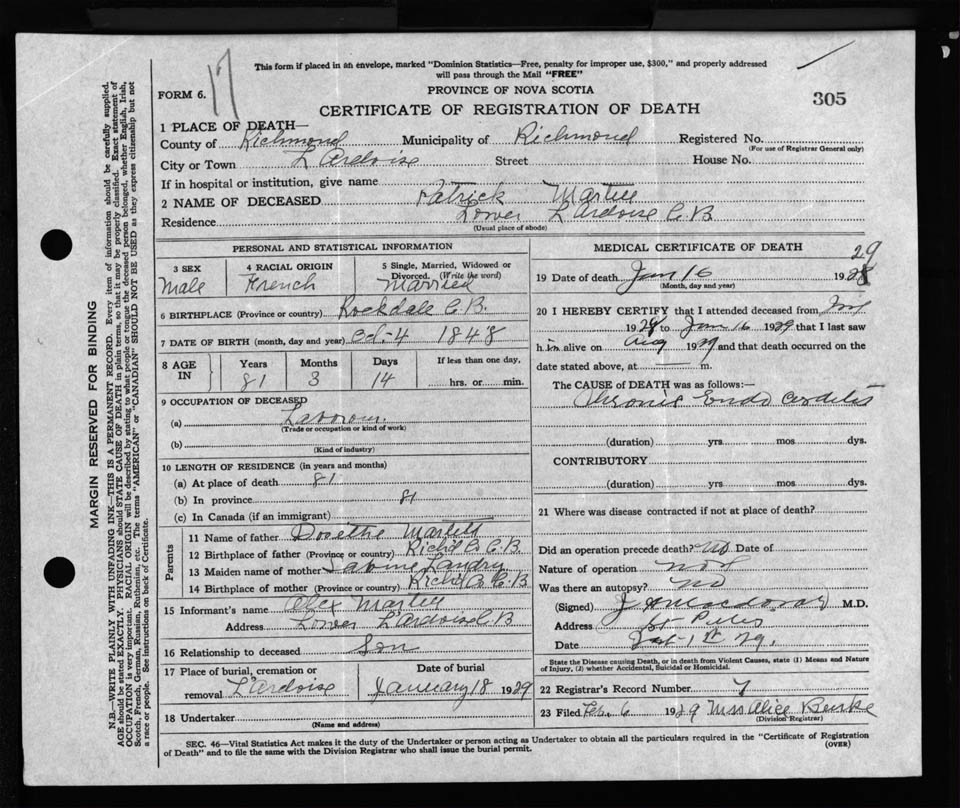 This form if placed in an envelope, marked "Dominion Statistics—Free, penalty for improper use, $300," and properly addressed
will pass through the Mail "FREE"
17
FORM 6.
PROVINCE OF NOVA SCOTIA
CERTIFICATE OF REGISTRATION OF DEATH
305
1 PLACE OF DEATH—
County of Richmond Municipality of Richmond Registered No.
(For use of Registrar General only)
City or Town L'Ardoise Street House No.
If in hospital or institution, give name
2 NAME OF DECEASED Patrick Martell
Residence Lower L'Ardoise C.B.
(Usual place of abode)
PERSONAL AND STATISTICAL INFORMATION
3 SEX
Male
4 RACIAL ORIGIN
French
5 Single, Married, Widowed or
Divorced. (Write the word)
Married
6 BIRTHPLACE (Province or country) Rockdale C.B.
7 DATE OF BIRTH (month, day and year) Oct. 4 1848
8 AGE IN
Years Months Days
81 3 14
If less than one day,
hrs. or min.
9 OCCUPATION OF DECEASED
(a)
(Trade or occupation or kind of work)
(b)
(Kind of industry)
10 LENGTH OF RESIDENCE (in years and months)
(a) At place of death 81
(b) In province 81
(c) In Canada (if an immigrant)
Parents
11 Name of father Martell
12 Birthplace of father (Province or country) Richd Co. C.B.
13 Maiden name of mother Sabine Landry
14 Birthplace of mother (Province or country) Richd Co. C.B
15 Informant's name Alex Martell
Address Lower L'Ardoise C B
16 Relationship to deceased Son
17 Place of burial, cremation or
removal L'Ardoise
Date of burial
January 18 1929
18 Undertaker
(Name and address)
MEDICAL CERTIFICATE OF DEATH
29
19 Date of death Jan 16 1928
(Month, day and year)
20 I HEREBY CERTIFY that I attended deceased from
1928 to Jan 16 1929 that I last saw
him alive on Aug 1929 and that death occurred on the
date stated above, at m.
The CAUSE OF DEATH was as follows:—
Chronic Endo carditis
(duration) yrs. mos dys.
CONTRIBUTORY
(duration) yrs. mos. dys.
21 Where was disease contracted if not at place of death?
Did an operation precede death? no Date of
Nature of operation
Was there an autopsy? no
(Signed) M.D.
Address St Peters
Date 1st 29.
State the Disease causing Death, or in death from Violent Causes, state (1) Means and Nature
of Injury, (2) whether Accidental, Suicidal or Homicidal.
22 Registrar's Record Number 7
23 Filed Feb. 6 1929 Miss Alice Burke
(Division Registrar)
SEC. 46—Vital Statistics Act makes it the duty of the Undertaker or person acting as Undertaker to obtain all the particulars required in the "Certificate of Registration
of Death" and to file the same with the Division Registrar who shall issue the burial permit.
(OVER)
MARGIN RESERVED FOR BINDING
N.B.—WRITE PLAINLY WITH UNFADING INK—THIS IS A PERMANENT RECORD. Every item of information should be carefully supplied.
AGE should be stated EXACTLY. PHYSICIANS should STATE CAUSE OF DEATH in plain terms, so that it may be properly classified. Exact statement of
OCCUPATION is very important. RACIAL ORIGIN will be described by stating to what people or tongue the deceased person belonged, whether English, Irish,
Scotch, French, German, Russian, Ruthenian, etc. The terms "AMERICAN" or "CANADIAN" SHOULD NOT BE USED as they express citizenship but not
a race or people. See instructions on back of Certificate.